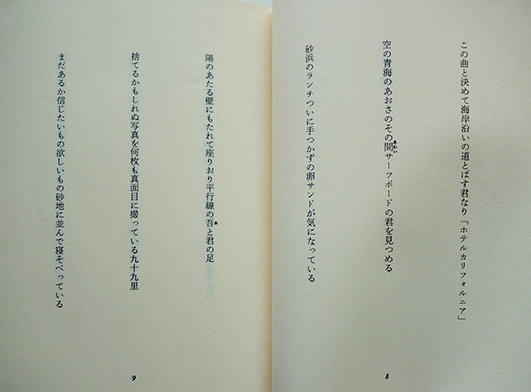 この曲と決めて海岸沿いの道とばす君なり「ホテルカリフォルニア」
空の青海のあおさのその間サーフボードの君を見つめる
砂浜のランチついに手つかずの卵サンドが気になっている
8
陽のあたる壁にもたれて座りおり平行線の吾と君の足
捨てるかもしれぬ写真を何枚も真面目に撮っている九十九里
まだあるか信じたいもの欲しいもの砂地に並んで寝そべっている
9